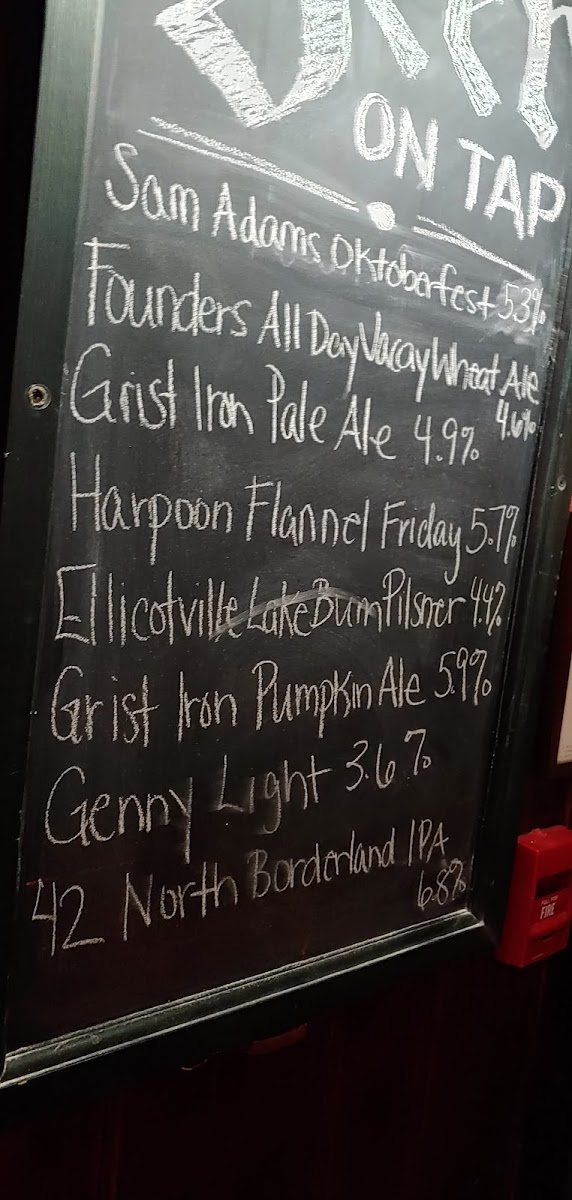 ON TAP
Sam Adams Oktoberfest 5.3%
Founders All Day Vacay Wheat Ale
4.6%
Grist Iron Pale Ale 4.9%
Harpoon Flannel Friday 5.7%
Ellicotville Lake Bum Pilsner 4.4%
Grist Iron Pumpkin Ale 5.9%
Genny Light 3.6%
42 North Borderland IPA
6.8%
FIRE